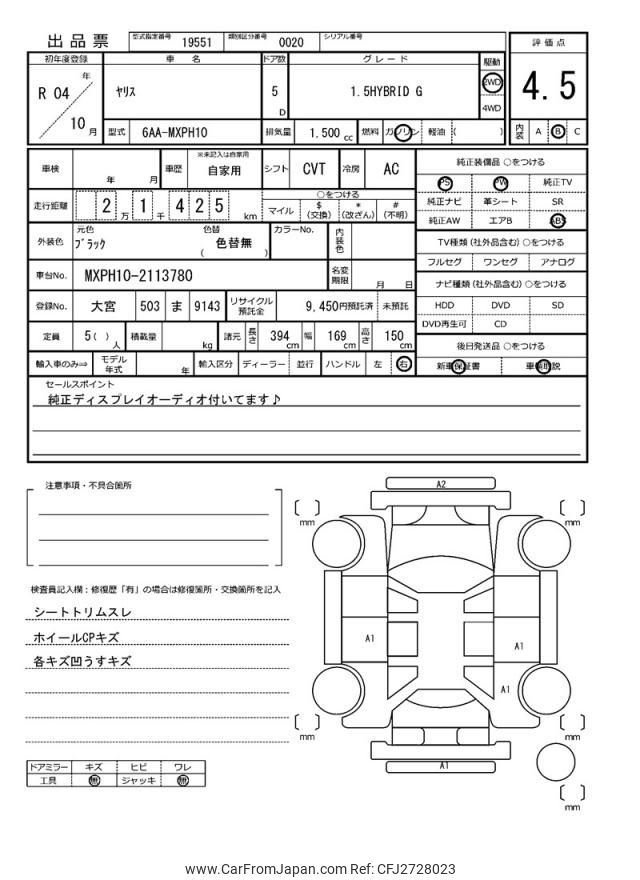 出品票 型式指定番号 19551 類別区分番号 0020 シリアル番号
評価点
4.5
内装 A B C
初年度登録 車名 ドア数 グレード 駆動
R 04 年 ヤリス 5 D 1.5HYBRID G 2WD
4WD
10 月 型式 6AA-MXPH10 排気量 1.500 cc 燃料 ガソリン 軽油 ( )
車検 年 月 車歴 ※未記入は自家用 自家用 シフト CVT 冷房 AC
走行距離 2 万 1 千 4 2 5 km ○をつける
マイル $ (交換) * (改ざん) # (不明)
外装色 元色 ブラック 色替 色替無 ( ) カラーNo. 内装色
車台No. MXPH10-2113780 名変期限 月 日
登録No. 大宮 503 ま 9143 リサイクル預託金 9,450円預託済 未預託
定員 5( )人 積載量 kg 諸元 長さ 394 cm 幅 169 cm 高さ 150 cm
輸入車のみ⇒ モデル年式 年 輸入区分 ディーラー 並行 ハンドル 左 右
純正装備品 ○をつける
PS PW 純正TV
純正ナビ 革シート SR
純正AW エアB ABS
TV種類(社外品含む)○をつける
フルセグ ワンセグ アナログ
ナビ種類(社外品含む)○をつける
HDD DVD SD
DVD再生可 CD
後日発送品 ○をつける
新車保証書 車輌取説
セールスポイント
純正ディスプレイオーディオ付いてます♪
注意事項・不具合箇所
検査員記入欄:修復歴「有」の場合は修復箇所・交換箇所を記入
シートトリムスレ
ホイールCPキズ
各キズ凹うすキズ
ドアミラー キズ ヒビ ワレ
工具 無 ジャッキ 無
A2
mm mm
A1 A1
A1
mm mm
A1
mm
www.CarFromJapan.com Ref: CFJ2728023